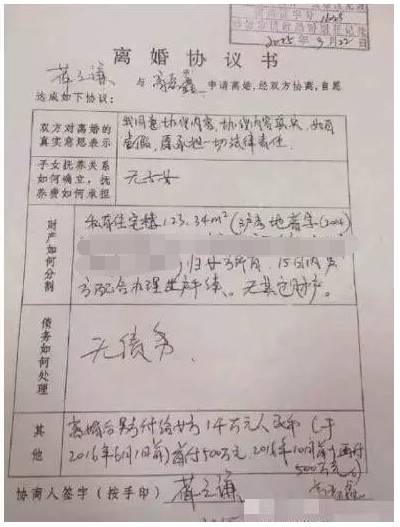 2015年9月22日
离婚协议书
薛之谦 与 高磊鑫 申请离婚,经双方协商,自愿
达成如下协议:
双方对离婚的
真实意思表示
我同意协议内容,协议内容真实,如有
虚假,愿承担一切法律责任.
子女抚养关系
如何确立,抚
养费如何承担
无子女
财产如何分割
私有住宅楼123.34m²(沪房地普字(2014)
归女方所有,15日内男
方配合办理过户手续。无其它财产。
债务如何处理
无债务.
其他
离婚后男方付给女方1千万元人民币(于
2016年6月1日前)首付500万元,2016年10月前
500万元
协商人签字(按手印)
薛之谦